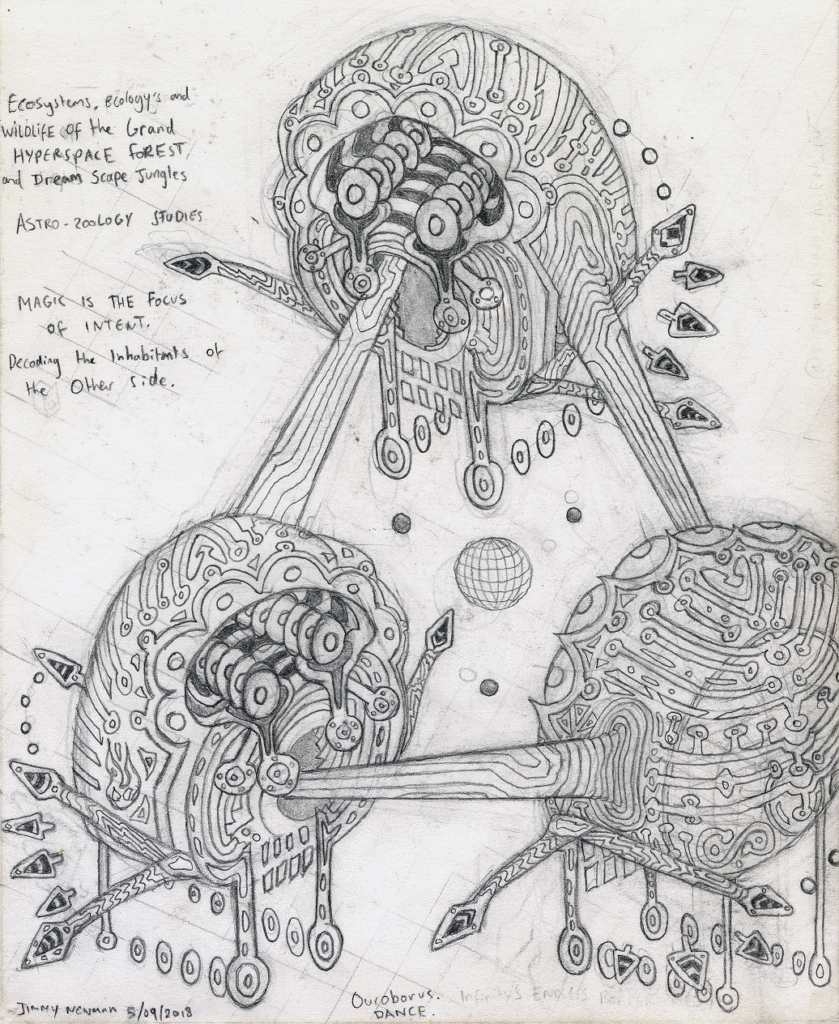 Ecosystems, ecology's and
WILDLIFE OF the Grand
HYPERSPACE FOREST
and Dream Scape Jungles
ASTRO-ZOOLOGY STUDIES
MAGIC IS THE FOCUS
OF INTENT.
Decoding the Inhabitants of
the Other side.
Ouroborus. Infinity's Endless
DANCE.
JIMMY NEWMAN 5/09/2018